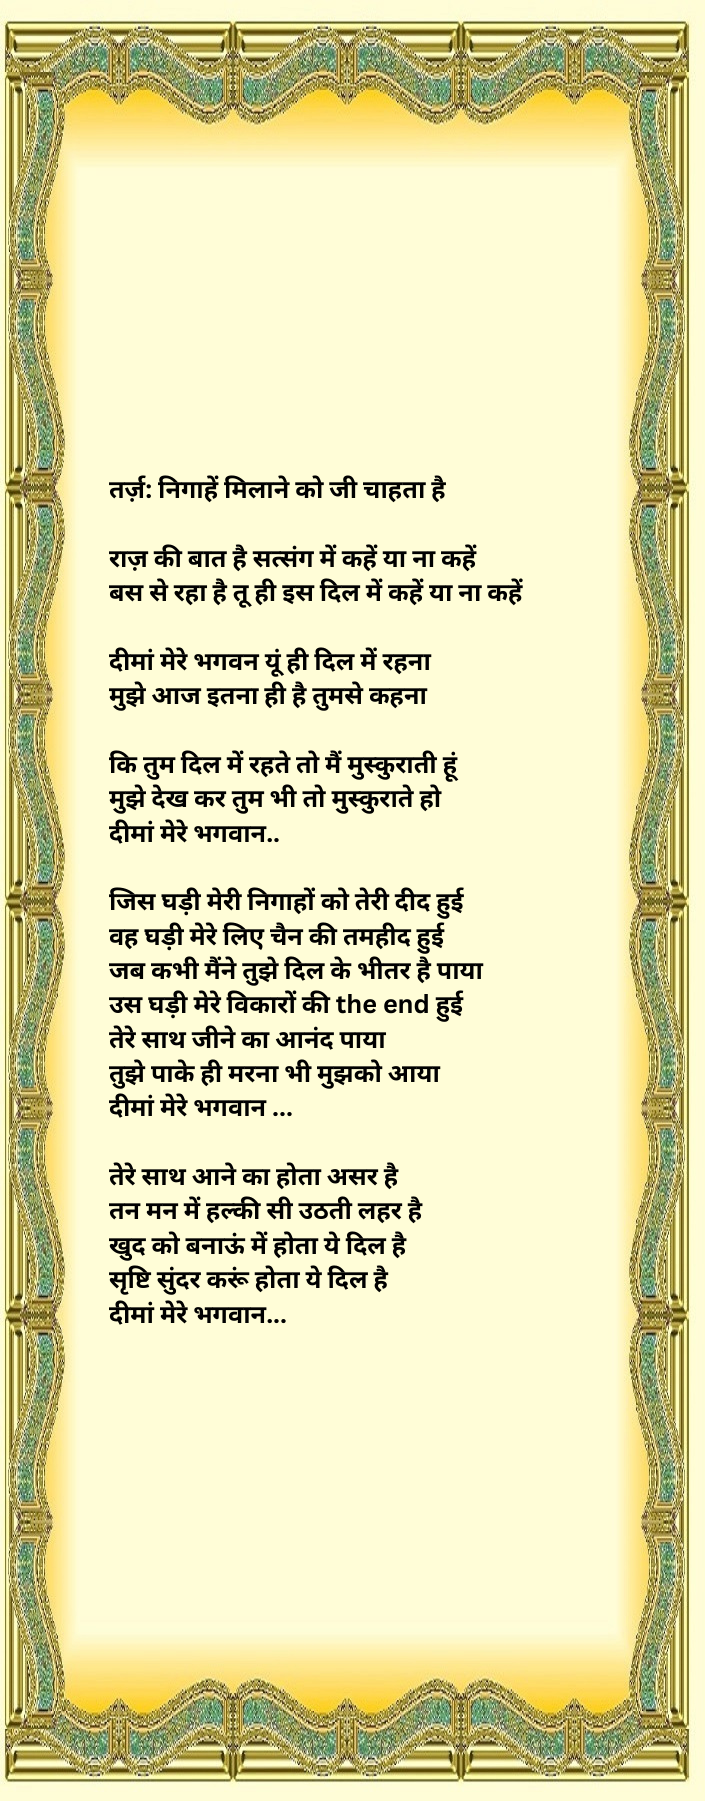 तर्ज़: निगाहें मिलाने को जी चाहता है
राज़ की बात है सत्संग में कहें या ना कहें
बस से रहा है तू ही इस दिल में कहें या ना कहें
दीमां मेरे भगवन यूं ही दिल में रहना
मुझे आज इतना ही है तुमसे कहना
कि तुम दिल में रहते तो मैं मुस्कुराती हूं
मुझे देख कर तुम भी तो मुस्कुराते हो
दीमां मेरे भगवान..
जिस घड़ी मेरी निगाहों को तेरी दीद हुई
वह घड़ी मेरे लिए चैन की तमहीद हुई
जब कभी मैंने तुझे दिल के भीतर है पाया
उस घड़ी मेरे विकारों की the end हुई
तेरे साथ जीने का आनंद पाया
तुझे पाके ही मरना भी मुझको आया
दीमां मेरे भगवान ...
तेरे साथ आने का होता असर है
तन मन में हल्की सी उठती लहर है
खुद को बनाऊं में होता ये दिल है
सृष्टि सुंदर करूं होता ये दिल है
दीमां मेरे भगवान...